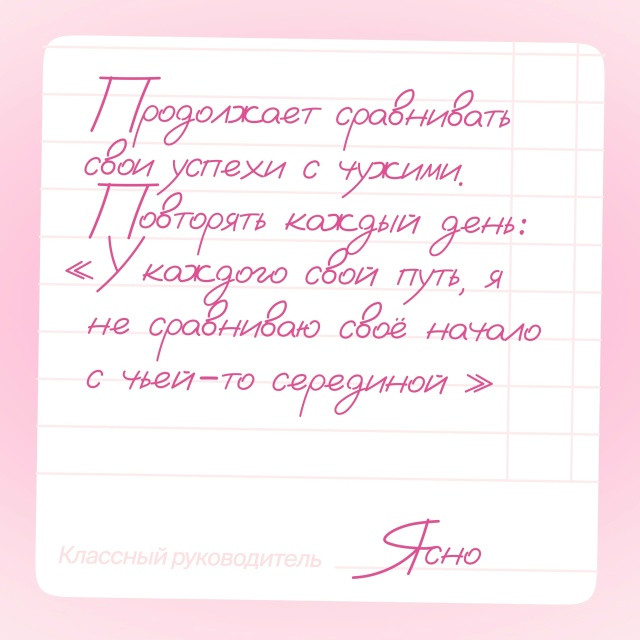 Продолжает сравнивать
свои успехи с чужими.
Повторять каждый день:
«У каждого свой путь, я
не сравниваю своё начало
с чьей-то серединой»
Классный руководитель Ясно